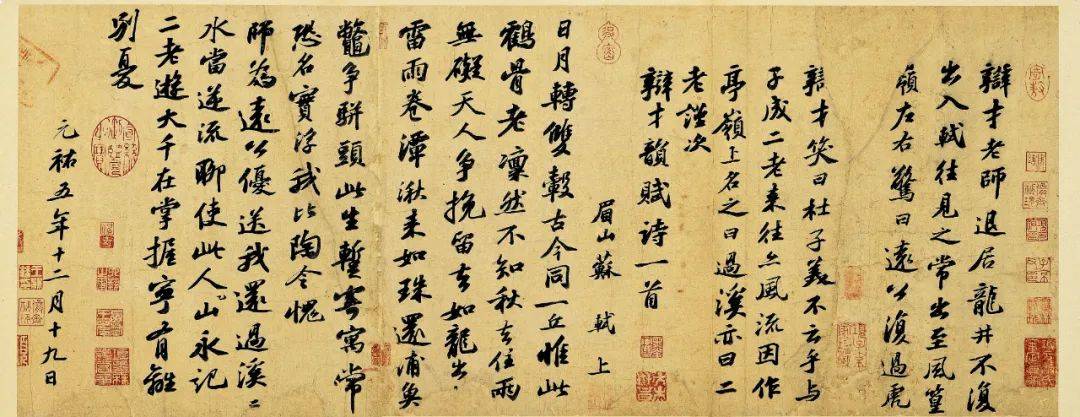 辯才老師退居龍井不復
出入軾往見之常出至風篁
嶺左右驚曰遠公復過虎
辯才笑曰杜子美不云乎與
子成二老來往亦風流因作
亭嶺上名之曰過溪亦曰二
老謹次
辯才韻賦詩一首
眉山蘇軾上
日月轉雙轂古今同一丘惟此
鶴骨老凜然不知秋去住兩
無礙天人爭挽留去如龍出
雷雨卷潭湫來如珠還浦魚
鼈爭駢頭此生蹔寄寓常
恐名實浮我比陶令愧
師為遠公優送我還過溪〻
水當逆流聊使此人山永記
二老遊大千在掌握寧有離
別憂
元祐五年十二月十九日